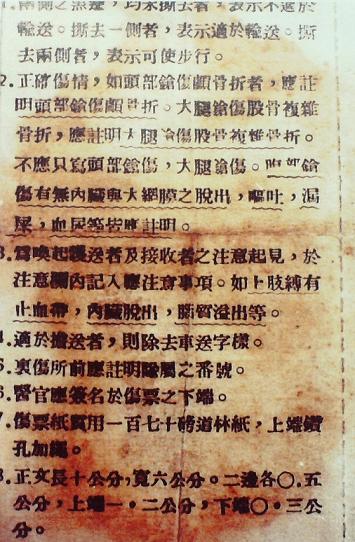 兩側之黑邊，均未撕去者，表示不適於
輸送。撕去一側者，表示適於輸送。撕
去兩側者，表示可使步行。
2.正確傷情，如頭部鎗傷顱骨折者，應註
明頭部鎗傷顱骨折。大腿鎗傷股骨複雜
骨折，應註明大腿鎗傷股骨複雜骨折。
不應只寫頭部鎗傷，大腿鎗傷。腹部鎗
傷有無內臟與大網膜之脫出，嘔吐，漏
尿，血尿等皆應註明。
3.為喚起護送者及接收者之注意起見，於
注意欄內記入應注意事項。如上肢縛有
止血帶，內臟脫出，腦質溢出等。
4.適於擔送者，則除去車送字樣。
5.裹傷所前應註明隸屬之番號。
6.醫官應簽名於傷票之下端。
7.傷票紙質用一百七十磅道林紙，上端鑽
孔加繩。
8.正文長十公分，寬六公分。二邊各〇．五
公分，上端一．二公分，下端〇．三公
分。